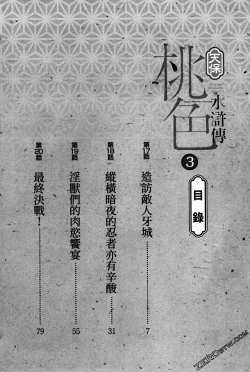 天保
桃色
水滸傳
3
目錄
第17話 造訪敵人牙城 7
第18話 縱橫暗夜的忍者亦有辛酸 31
第19話 淫獸們的肉慾饗宴 55
第20話 最終決戰! 79